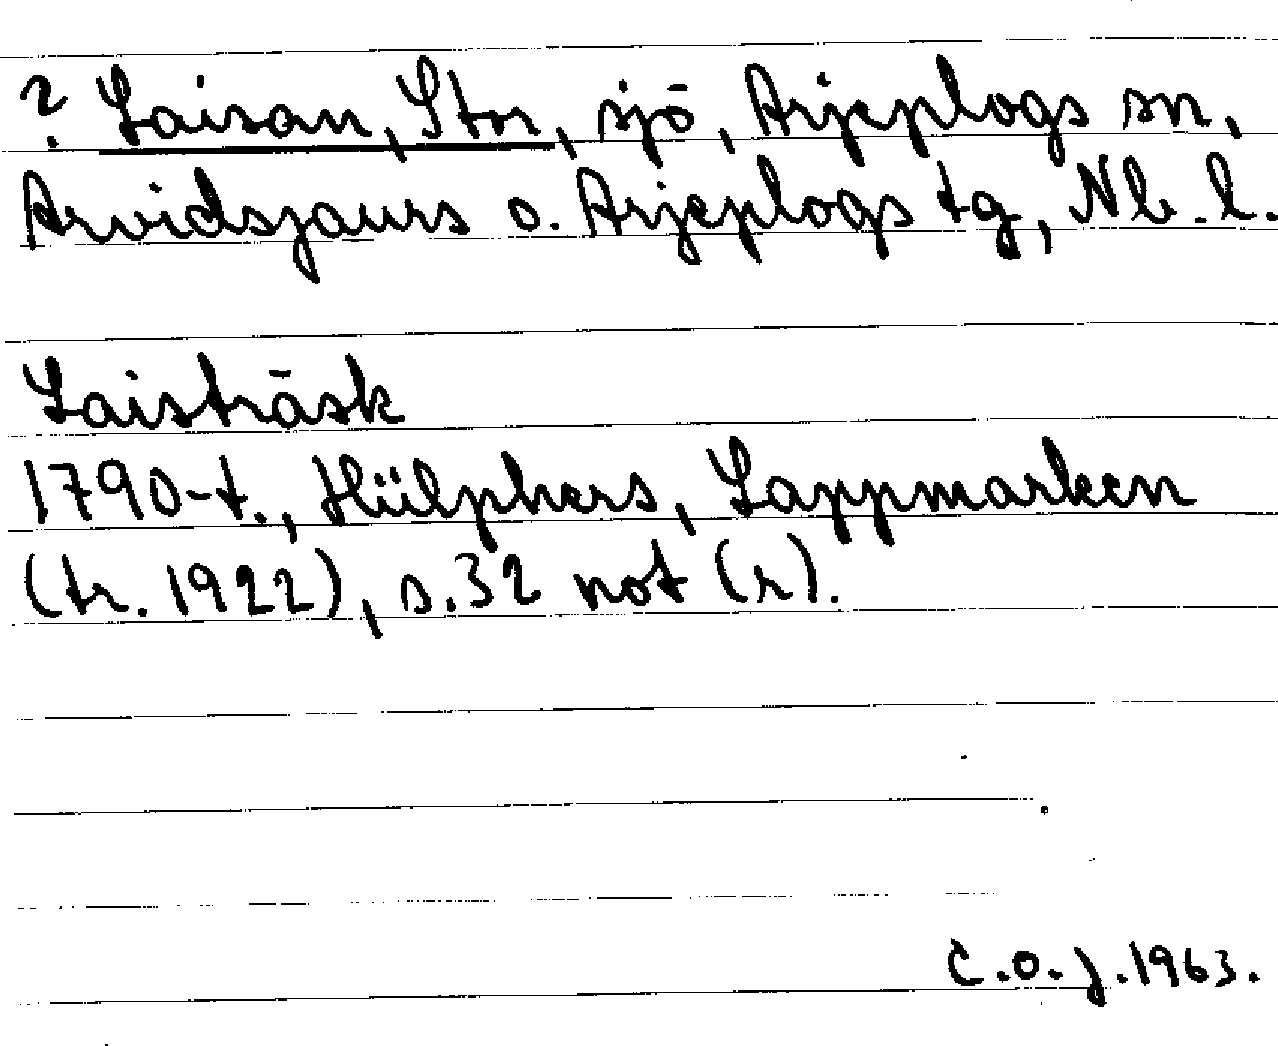 ? Laisan, Stor, sjö, Arjeplogs sn,
Arvidsjaurs o. Arjeplogs tg, Nb. l.
Laisträsk
1790-t., Hülphers, Lappmarken
(tr. 1922), s.32 not (r).
C.O.J.1963.